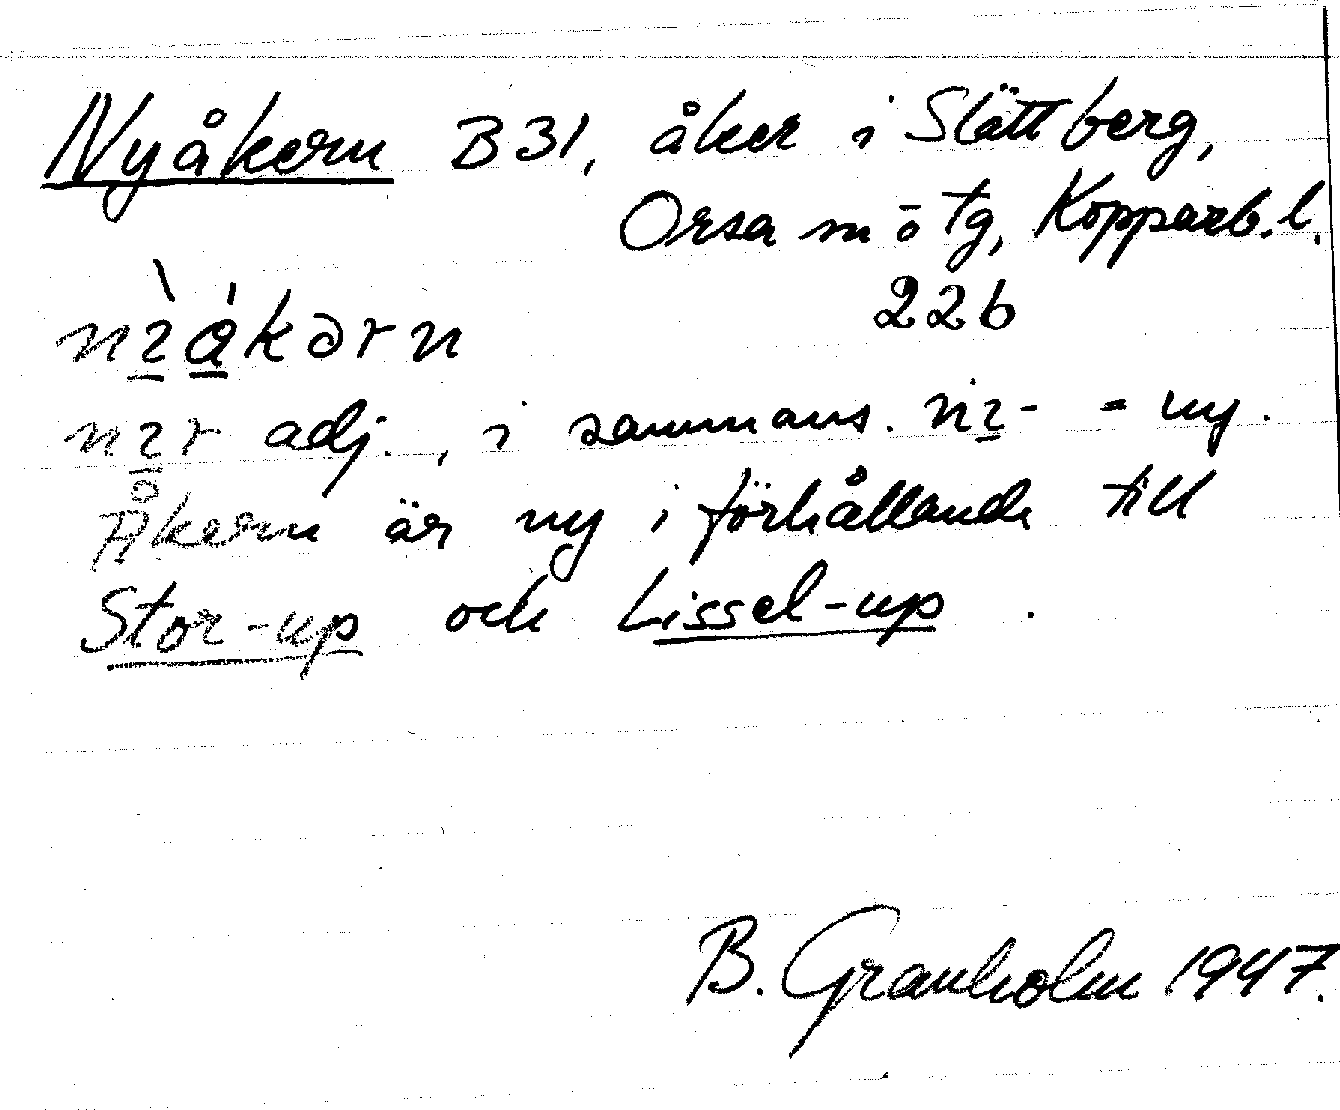 Nyåkern B31, åker i Slättberg,
Orsa sn o tg, Kopparb. l.
22b
adj., i sammans. = ny.
Åkern är ny i förhållande till
Stor-up och Lissel-up.
B. Granholm 1947.